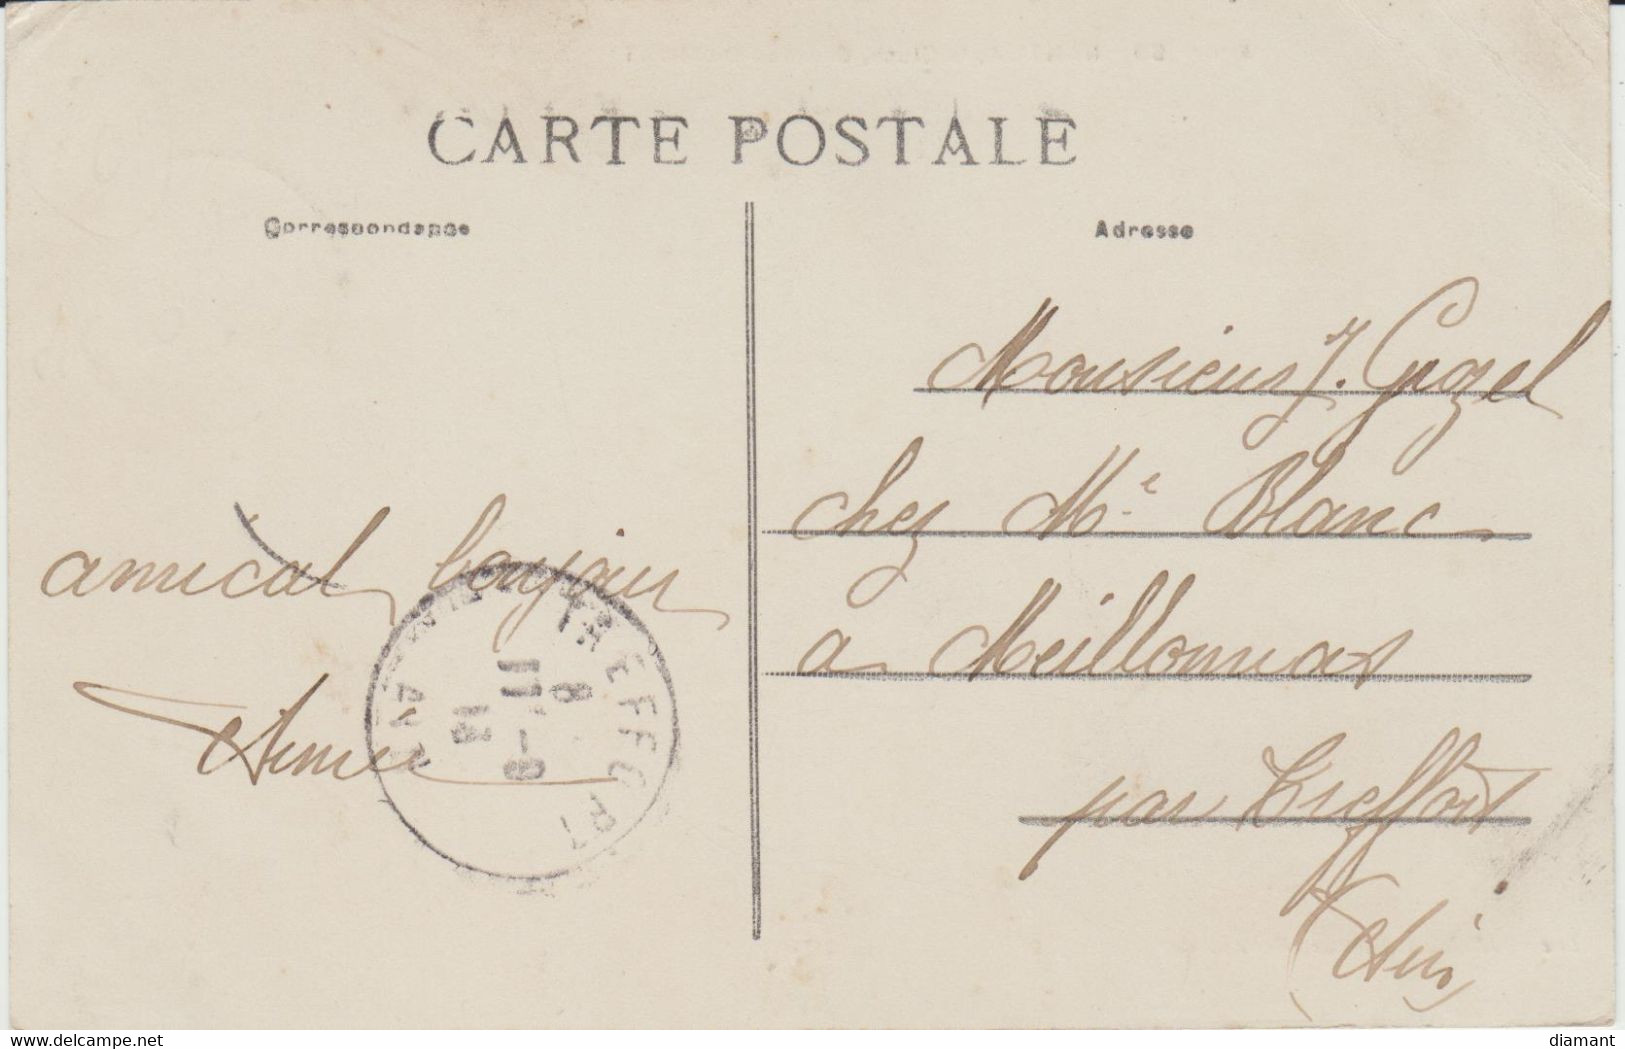 CARTE POSTALE
Correspondance
Adresse
Monsieur J.
chez Me Blanc
à Meillonnas
par Treffort
(Ain)
amical bonjour
Aimé
TREFFORT
AIN
8
17-8
14
www.delcampe.net
diamant